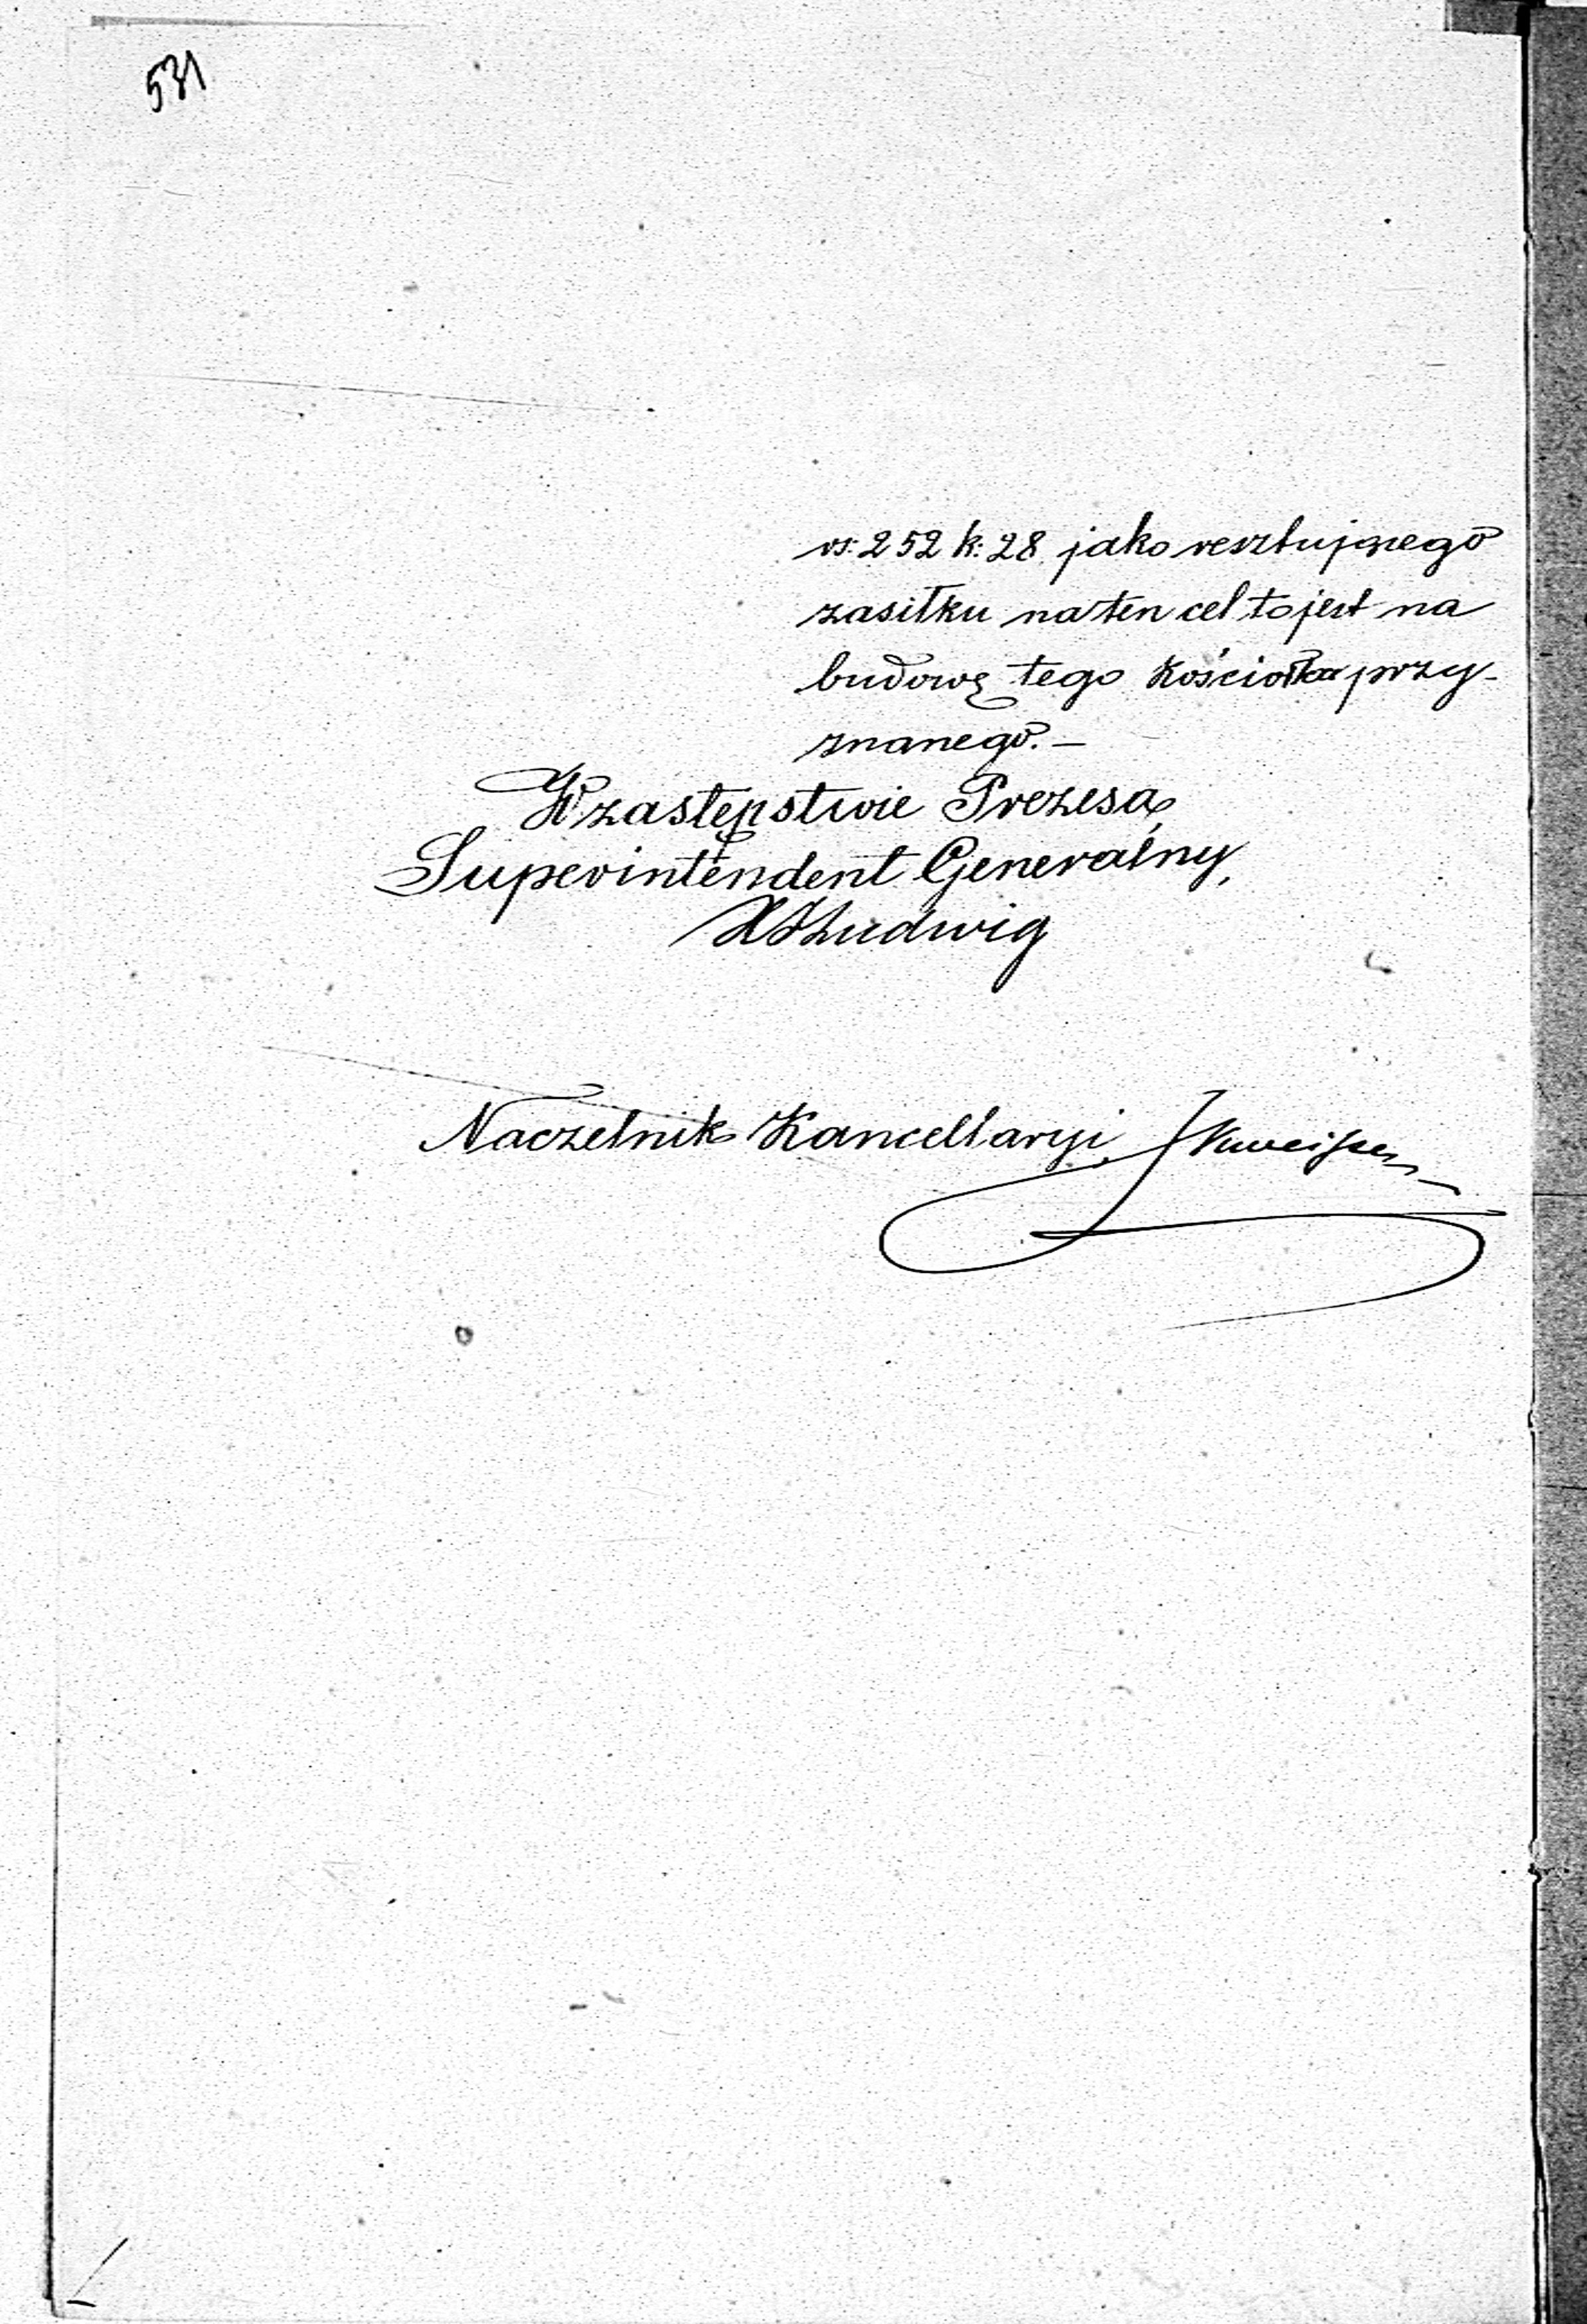 531
rs: 252 k: 28 jako resztującego
zasiłku na ten cel to jest na
budowę tego kościoła przy-
znanego. —
W zastępstwie Prezesa,
Superintendent Generalny,
Ludwig
Naczelnik Kancellaryi,